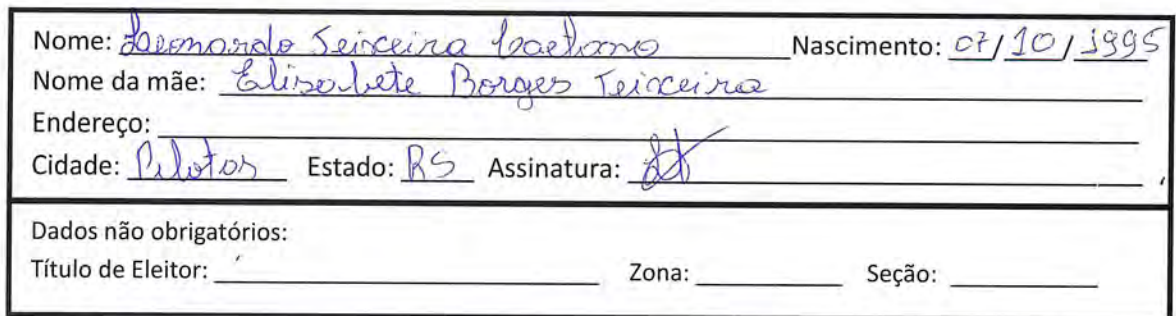 Nome: Leonardo Teixeira Caetano Nascimento: 07/10/1995
Nome da mãe: Elisabete Borges Teixeira
Endereço:
Cidade: Pelotas Estado: RS Assinatura:
Dados não obrigatórios:
Título de Eleitor: Zona: Seção: